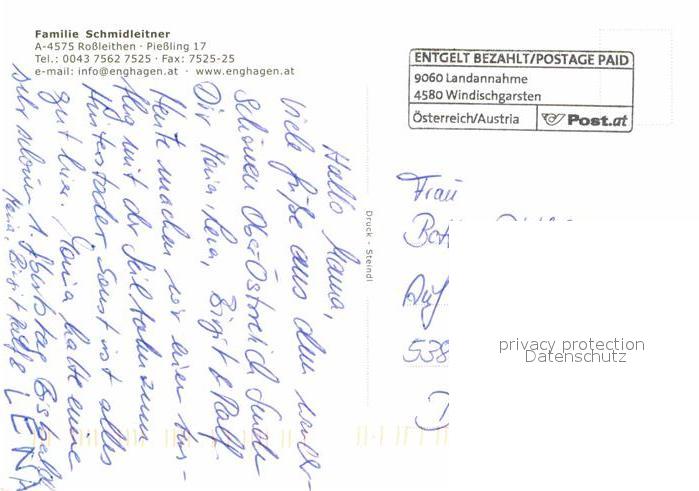 Familie Schmidleitner
A-4575 Roßleithen · Pießling 17
Tel.: 0043 7562 7525 · Fax: 7525-25
e-mail: info@enghagen.at · www.enghagen.at
ENTGELT BEZAHLT/POSTAGE PAID
9060 Landannahme
4580 Windischgarsten
Österreich/Austria
Post.at
Hallo Mama,
viele Grüße aus dem
schönen Ober-Östreich
Dir Maria, Birgit & Ralf.
Heute machen wir einen
mit der Seilbahn zum
Hinterstoder. Sonst ist alles
gut hier. Maria hatte einen
sehr schönen 1. Bis bald
Maria, Birgit Ralf LENA
Druck - Steindl
Frau
Auf
538
D
privacy protection
Datenschutz